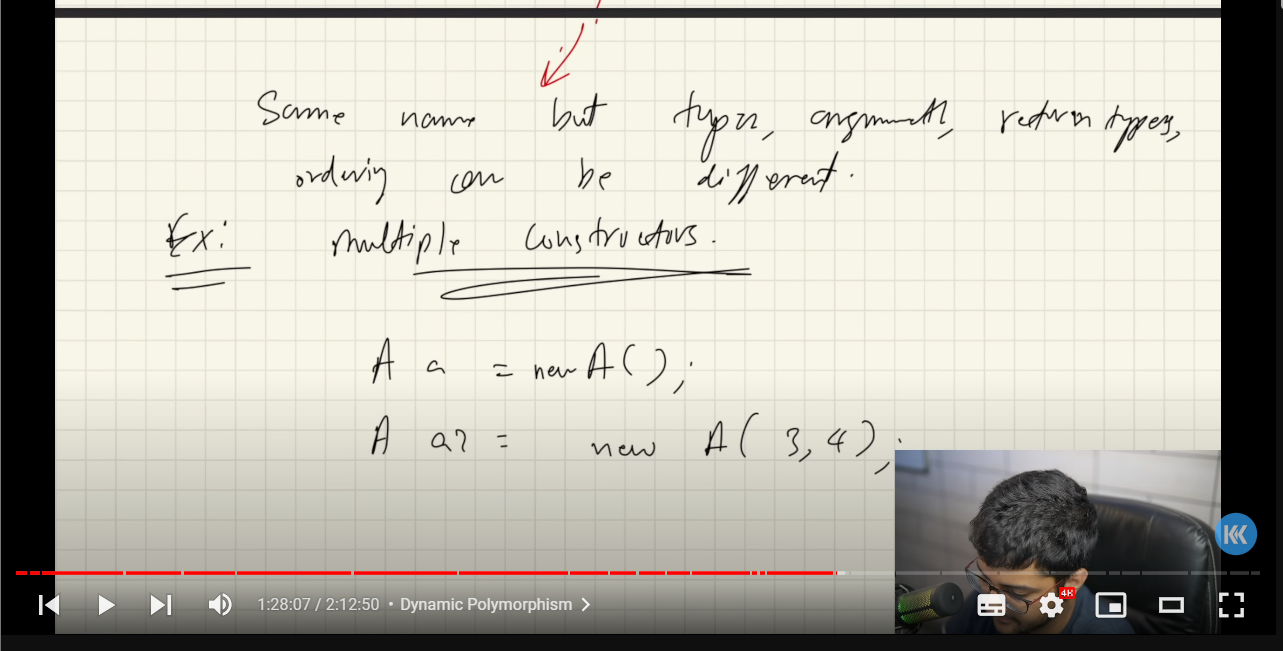 Same name but types, arguments, return types,
ordering can be different.
Ex: multiple constructors.
A a = new A();
A a2 = new A( 3, 4);
1:28:07 / 2:12:50 • Dynamic Polymorphism
4K